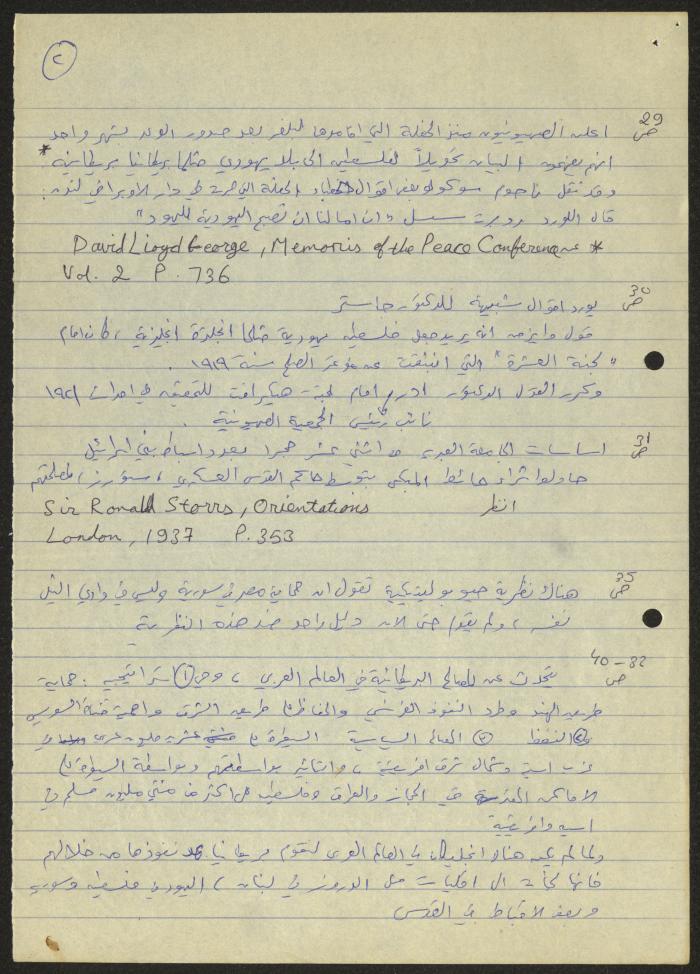 ٢
ص 29 اعلن الصهيونيون منذ الحفلة التي اقاموها لبلفور بعد صدور الوعد بشهر واحد
انهم يعتبرون البيان تحويلاً لفلسطين الى بلاد يهودي مثلما بريطانيا بريطانية *
وقد نقل ناحوم سوكولو بعض اقوال الخطباء الحفلة التي جرت في دار الاوبرا في لندن:
قال اللورد روبرت سسل "ان امالنا ان تصبح اليهودية لليهود"
David Lioyd George, Memoris of the Peace Conference *
Vol. 2 P. 736
ص 30 يورد اقوال شبيهة للدكتور جاستر
قول وايزمن انه يريد جعل فلسطين يهودية مثلما انجلترة انجليزية، كان امام
"لجنة العشرة" التي انبثقت عن مؤتمر الصلح سنة ١٩١٩.
وكرر القول الدكتور ادر امام لجنة هيكرافت للتحقيق في احداث ١٩٢١
نائب رئيس الجمعية الصهيونية.
ص 31 اساسات الجامعة العبرية اثني عشر حجرا بعدد اسباط بني اسرائيل
حاولوا شراء حائط المبكى بتوسط حاكم القدس العسكري، ستورز، لمصلحتهم
انظر Sir Ronald Storrs, Orientations
London, 1937 P. 353
ص 35 هناك نظرية جيوبوليتيكية تقول ان حماية مصر في سورية وليس في وادي النيل
نفسه، ولم يقم حتى الان دليل واحد ضد هذه النظرية
ص 32-40 يتحدث عن المصالح البريطانية في العالم العربي، وهي ① استراتيجية: حماية
طريق الهند وطرد النفوذ الفرنسي والحفاظ على طريق الشرق واهمية قناة السويس
② النفط ③ المصالح السياسية السيطرة على عشرين مليون عربي في
غرب اسيا وشمال شرق افريقية، والتأثير بواسطتهم وبواسطة السيطرة على
الاماكن المقدسة في الحجاز والعراق وفلسطين على اكثر من مئتي مليون مسلم في
اسيه وافريقية
ولما لم يكن هناك انجليكان في العالم العربي لتقوم بريطانيا نفوذها من خلالهم
فانها لجأت الى اقليات مثل الدروز في لبنان، اليهود في فلسطين وسوريه
وبعض الاقباط في القدس